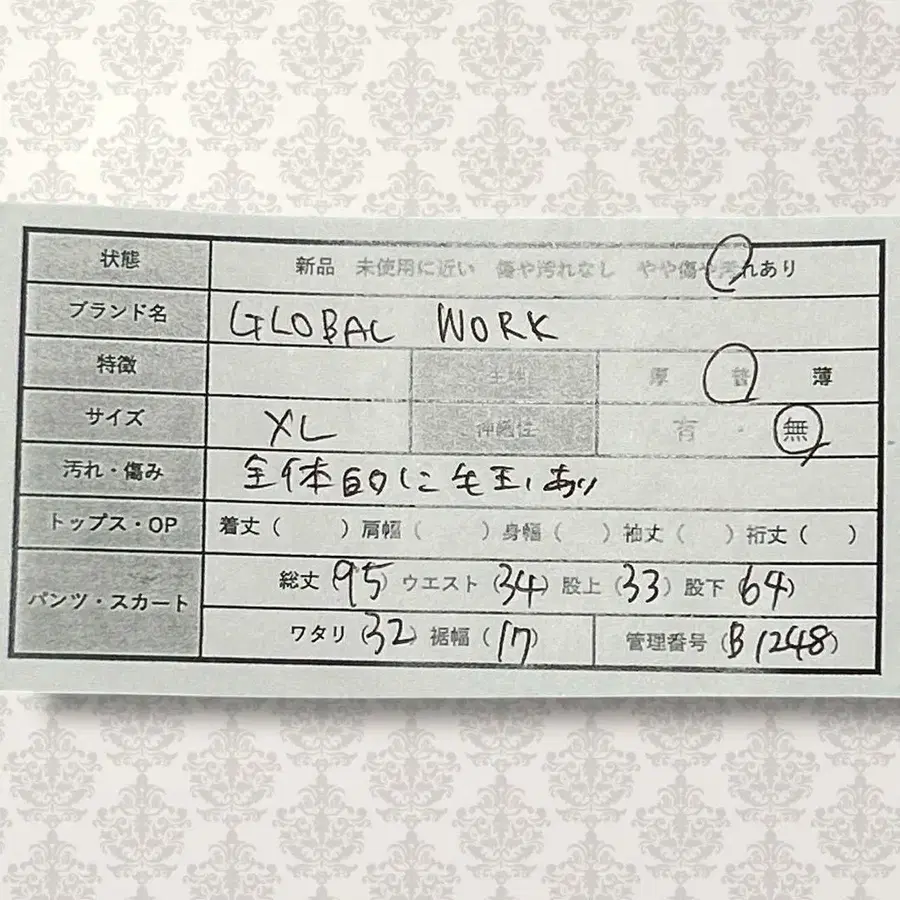 状態 新品 未使用に近い 傷や汚れなし やや傷や汚れあり
ブランド名 GLOBAL WORK
特徴 生地 厚 普 薄
サイズ XL 伸縮性 有 ・ 無
汚れ・傷み 全体的に毛玉あり
トップス・OP 着丈( )肩幅( )身幅( )袖丈( )裄丈( )
パンツ・スカート 総丈(95)ウエスト(34)股上(33)股下(64)
ワタリ(32)裾幅(17) 管理番号(B1248)